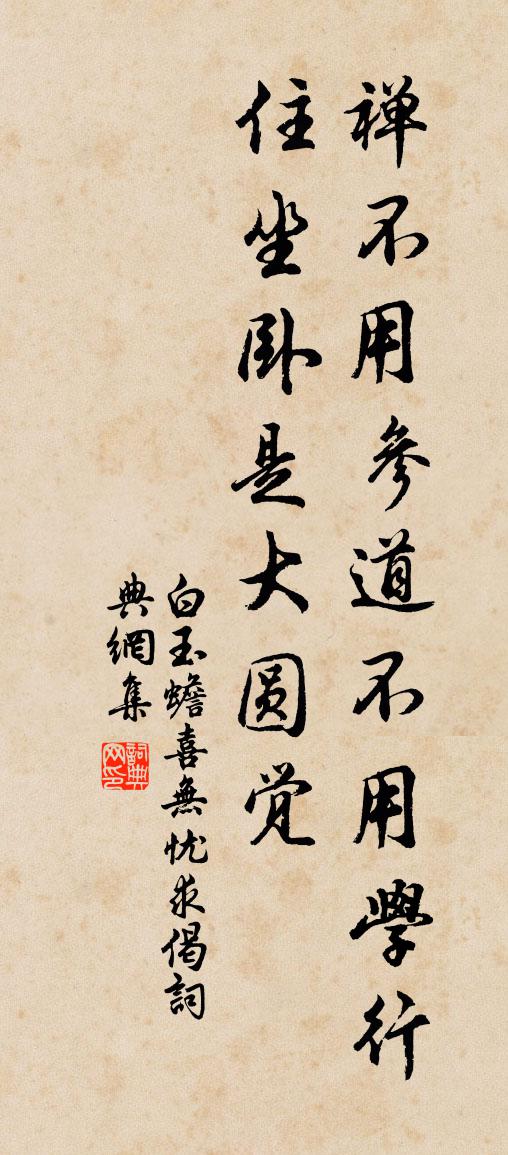 禅不用參道不用學行
住坐卧是大圆觉
白玉蟾喜無忧求偈詞
典網集
詞典网印